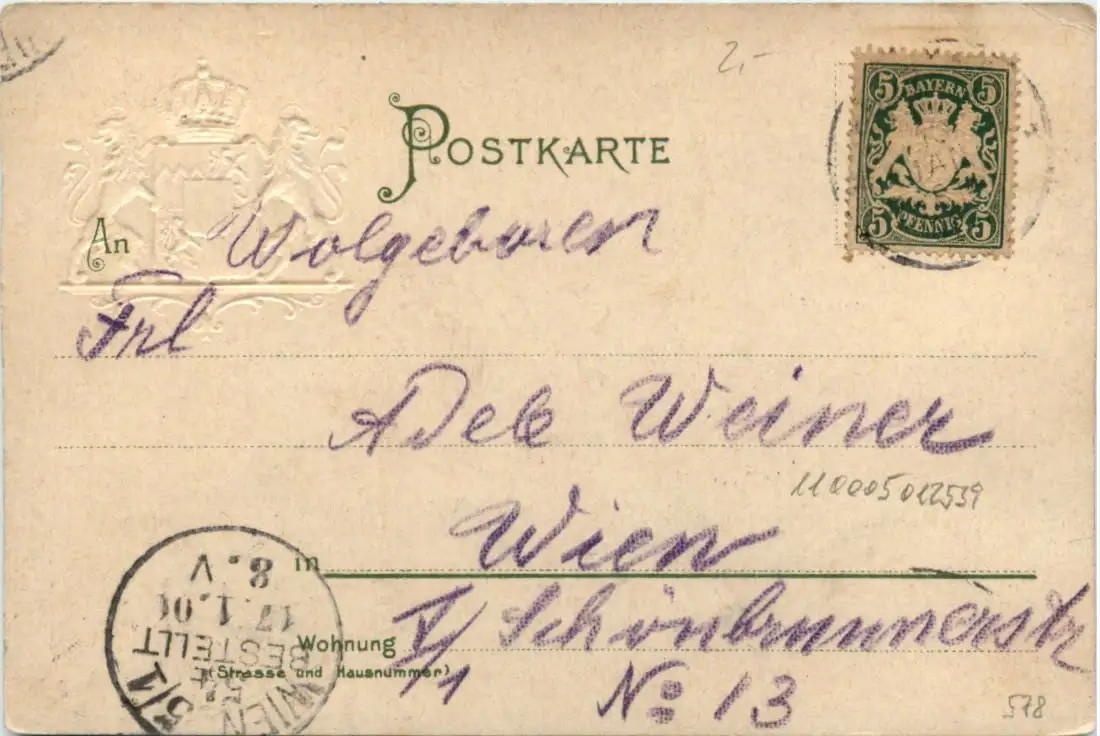 2,-
POSTKARTE
5 BAYERN 5
5 PFENNIG 5
An Wolgeboren
Frl
Adele Weiner
110005012539
in Wien
Wohnung V/1 Schönbrunnerstr
(Strasse und Hausnummer)
No 13
578
WIEN 5/1
BESTELLT
17.1.01
8.V